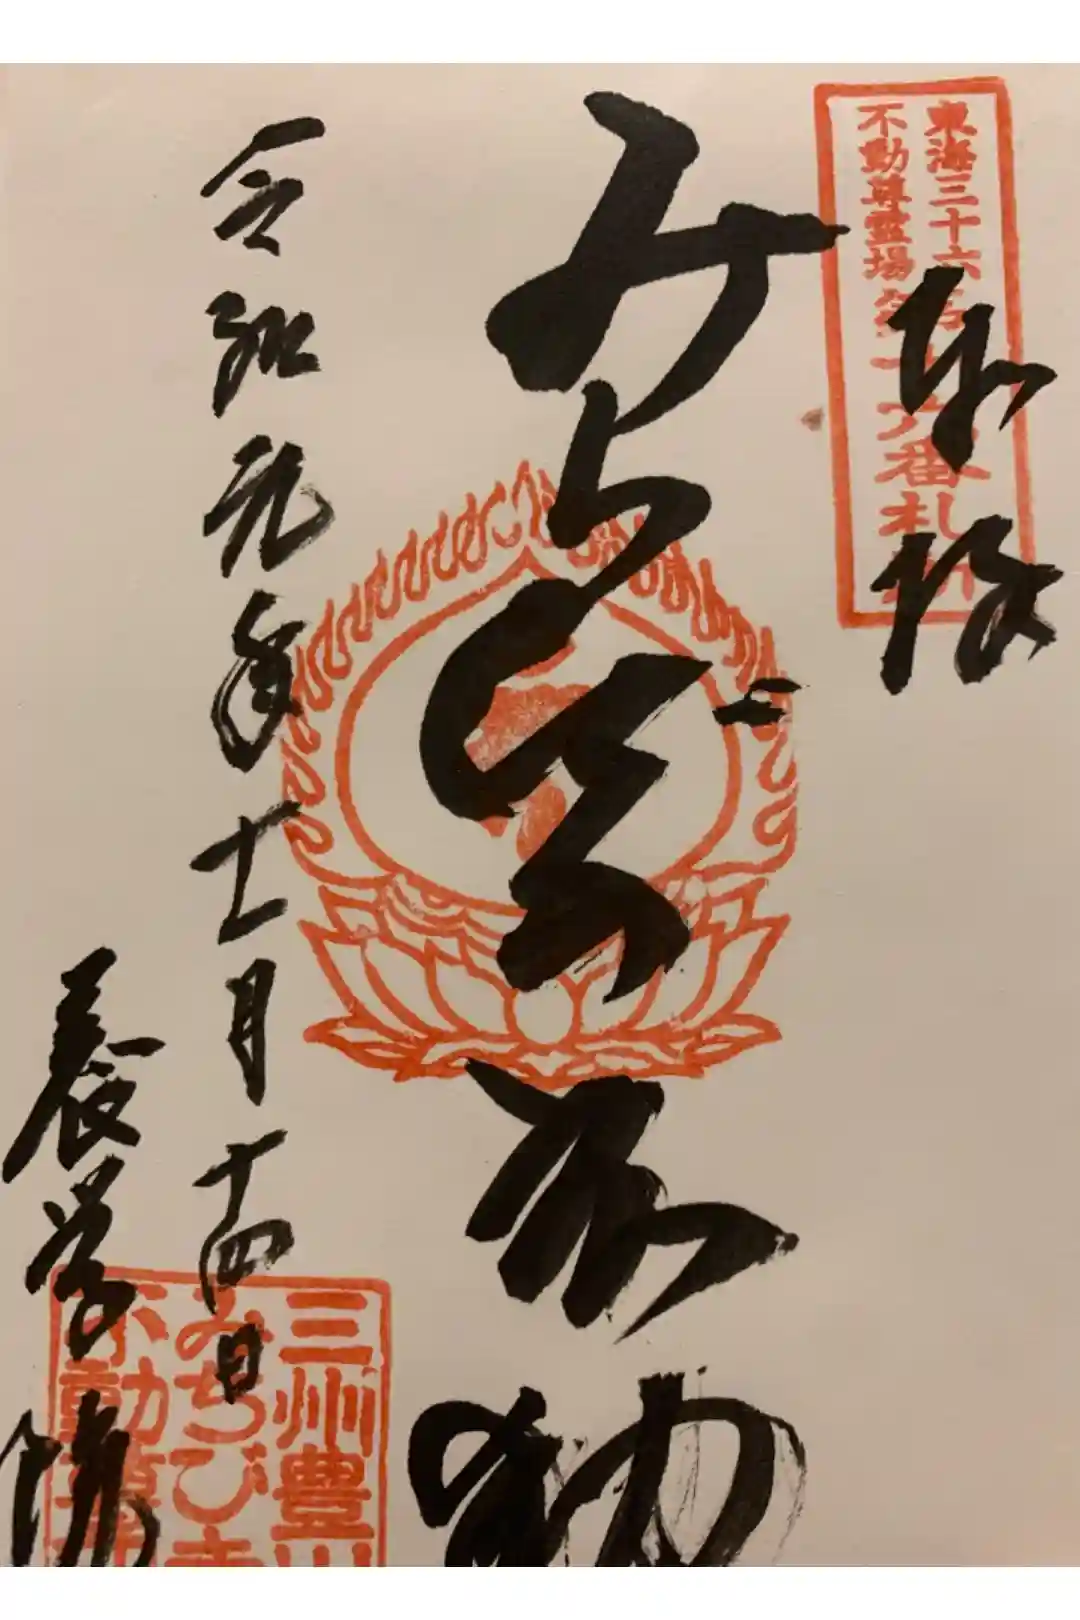 東海三十六
不動尊霊場
第十六番札所
奉拝
みちびき不動
令和元年十一月十四日
養学院
三州豊川
みちびき
不動尊